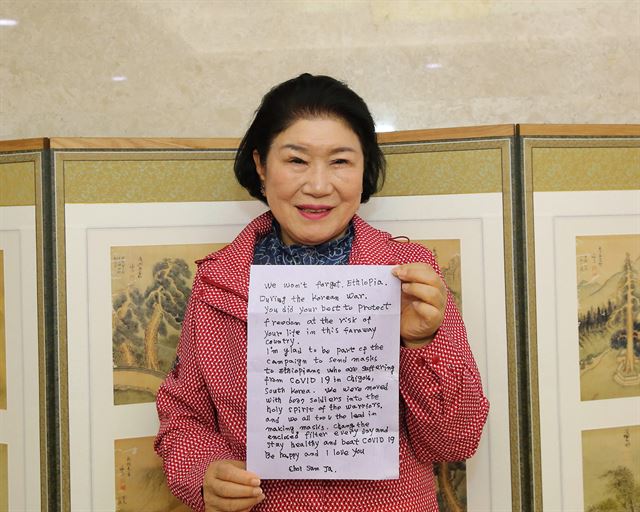 We won't forget. Ethiopia.
During the Korean War.
You did your best to protect
freedom at the risk of
your life in this faraway
country.
I'm glad to be part of the
campaign to send masks
to Ethiopians who are suffering
from COVID 19 in Chilgok,
South Korea. We were moved
with 6037 soldiers into the
holy spirit of the warriors,
and we all took the lead in
making masks. Change the
enclosed filter every day and
stay healthy and beat COVID 19
Be happy and I love you
Choi Sam Ja.